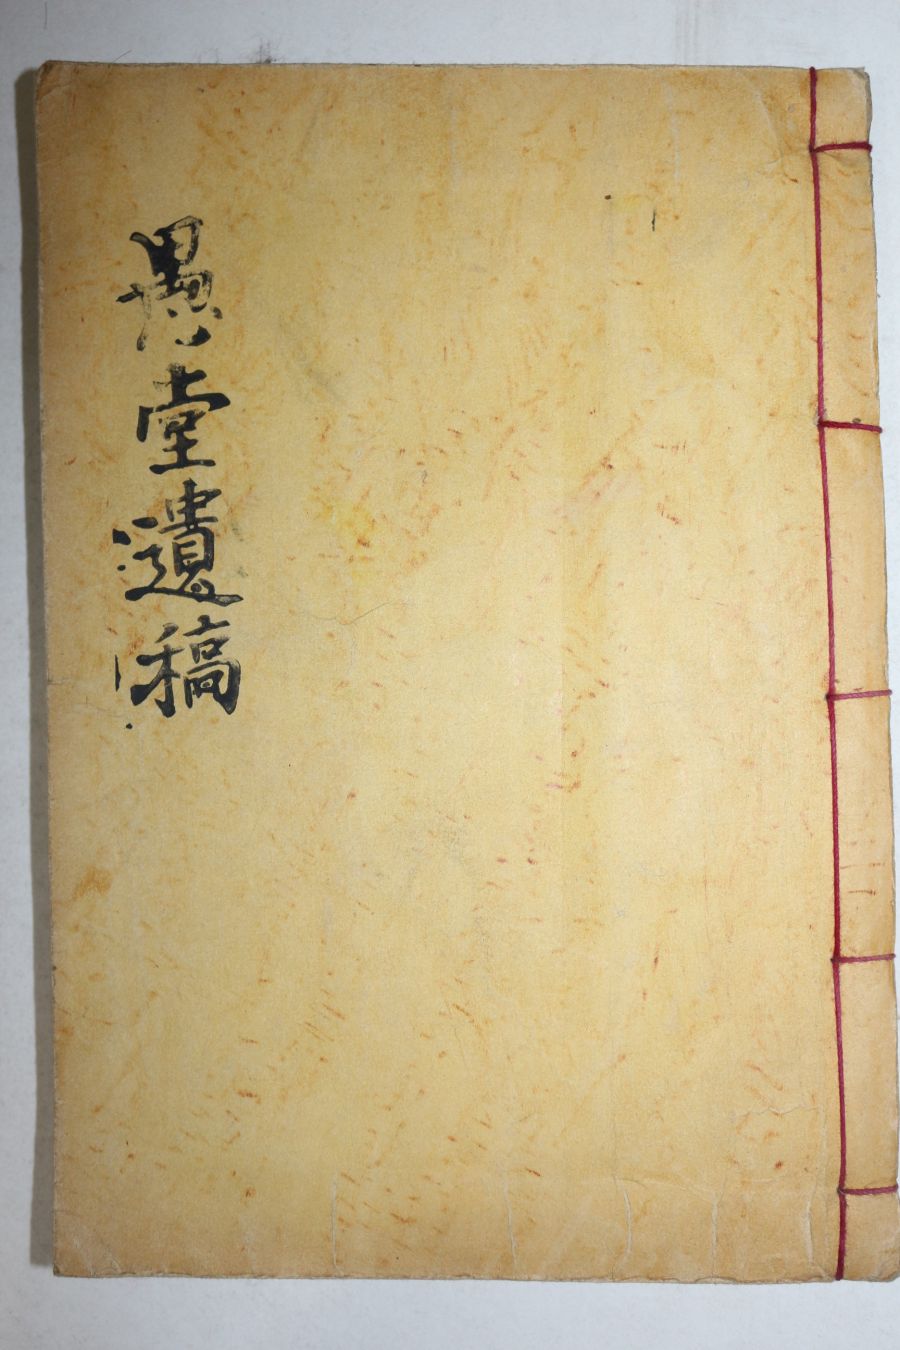 愚堂遺稿